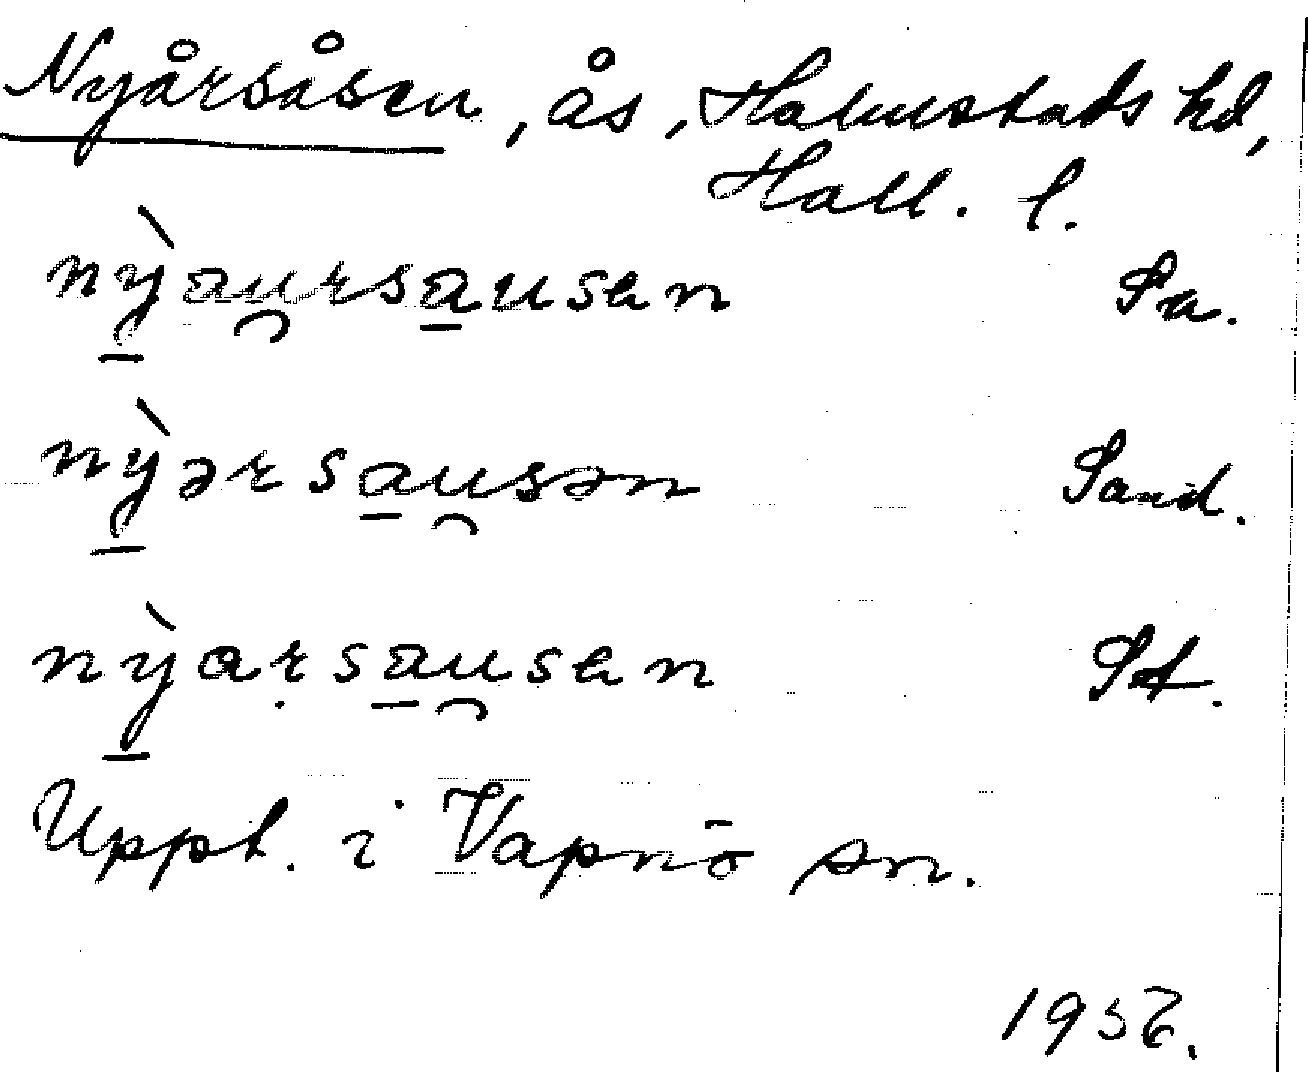 Nyårsåsen, ås, Halmstads hd,
Hall. l.
nỳau̯rsausen Sa.
nỳərsau̯sən Sand.
nỳarsau̯sen St.
Uppt. i Vapnö sn.
1956.